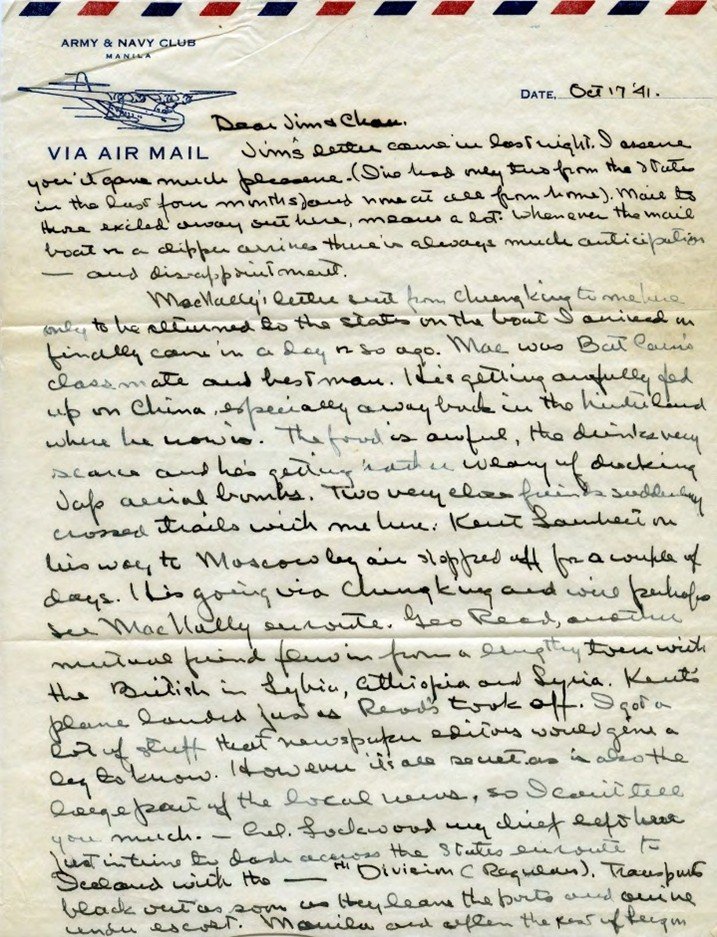 ARMY & NAVY CLUB
MANILA
DATE, Oct 17 '41.
VIA AIR MAIL
Dear Jim & Chan.
Jim's letter came in last night. I assure
you it gave much pleasure. (I've had only two from the States
in the last four months) and none at all from home). Mail to
those exiled away out here, means a lot. Whenever the mail
boat or a clipper arrives there is always much anticipation
— and disappointment.
MacNally's letter sent from Chungking to me here
only to be returned to the states on the boat I arrived on
finally came in a day or so ago. Mac was Bat Cain's
classmate and best man. He is getting awfully fed
up on China, especially away back in the hinterland
where he now is. The food is awful, the drinks very
scarce and he's getting rather weary of ducking
Jap aerial bombs. Two very close friends suddenly
crossed trails with me here. Kent Lambert on
his way to Moscow by air stopped off for a couple of
days. He is going via Chungking and will perhaps
see MacNally enroute. Geo Read, another
mutual friend flew in from a lengthy tour with
the British in Lybia, Ethiopia and Syria. Kent's
plane landed just as Read's took off. I got a
lot of stuff that newspaper editors would give a
leg to know. However it's all secret as is also the
large part of the local news, so I can't tell
you much. — Col. Lockwood my chief left here
just in time to dash across the States enroute to
Iceland with the — th Division (Regulars). Transports
black out as soon as they leave the ports and arrive
under escort. Manila and often the rest of Luzon